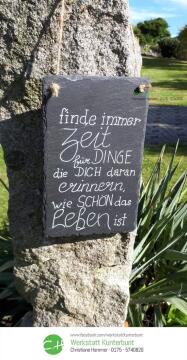 finde immer
Zeit
für DINGE
die DICH daran
erinnern,
wie SCHÖN das
Leben ist
www.facebook.com/werkstattkunterbunt
Werkstatt Kunterbunt
Christiane Hammer - 0175 - 5740820